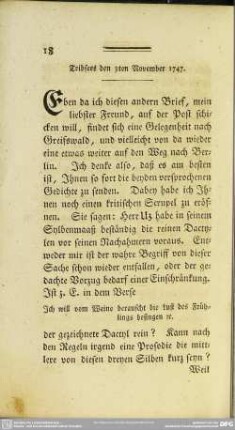 18
Tribsees den 3ten November 1747.
Eben da ich diesen andern Brief, mein
liebster Freund, auf der Post schi-
cken will, findet sich eine Gelegenheit nach
Greifswald, und vielleicht von da wieder
eine etwas weiter auf den Weg nach Ber-
lin. Ich denke also, daß es am besten
ist, Ihnen so fort die beyden versprochenen
Gedichte zu senden. Dabey habe ich Ih-
nen noch einen kritischen Scrupel zu eröf-
nen. Sie sagen: Herr Uz habe in seinem
Sylbenmaaß beständig die reinen Dacty-
len vor seinen Nachahmern voraus. Ent-
weder mir ist der wahre Begriff von dieser
Sache schon wieder entfallen, oder der ge-
dachte Vorzug bedarf einer Einschränkung.
Ist z. E. in dem Verse
Ich will vom Weine berauscht die Lust des Früh-
lings besingen ꝛc.
der gezeichnete Dactyl rein? Kann nach
den Regeln irgend eine Prosodie die mitt-
lere von diesen dreyen Silben kurz seyn?
Weil